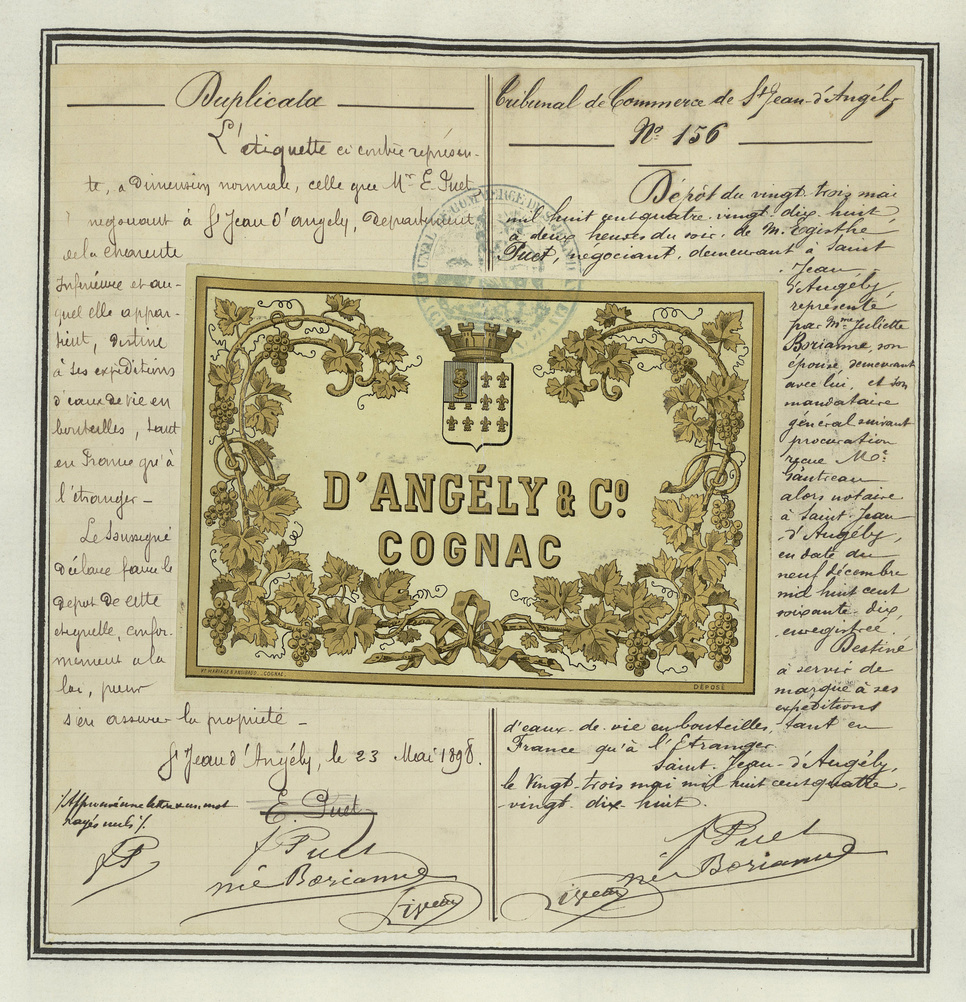 Duplicata
L'étiquette ci contre représen-
te, a Dimension normale, celle que Mr E. Puet
négociant à St Jean D'angely, Département
de la Charente
Inférieure et au-
quel elle appar-
tient, destine
à ses expéditions
d'eaux de vie en
bouteilles, tant
en France qu'à
l'étranger -
Le Soussigné
Déclare faire le
depot De cette
etiquette, confor-
mement a la
loi, pour
s'en assurer la propriété -
St Jean d'Angély, le 23 Mai 1898.
Approuvé une lettre & un mot
rayés nuls /.
E. Puet
JP
J Puet
née Borianne
Tribunal de Commerce de St Jean-d'Angély
No 156
Dépôt du vingt-trois mai
mil huit cent quatre-vingt-dix-huit
à deux heures du soir, de M. Egisthe
Puet, négociant, demeurant à Saint
Jean
d'Angély,
représenté
par Mme Juliette
Borianne, son
épouse, demeurant
avec lui, et son
mandataire
général suivant
procuration
reçue Me
Gautreau
alors notaire
à Saint-Jean
d'Angély,
en date du
neuf décembre
mil huit cent
soixante-dix,
enregistrée.
Destiné
à servir de
marque à ses
expéditions
d'eaux-de-vie en bouteilles, tant en
France qu'à l'Etranger.
Saint-Jean-d'Angély,
le vingt-trois mai mil huit cent quatre-
vingt-dix-huit.
J Puet
née Borianne
D'ANGÉLY & Co.
COGNAC
COGNAC.
DÉPOSÉ